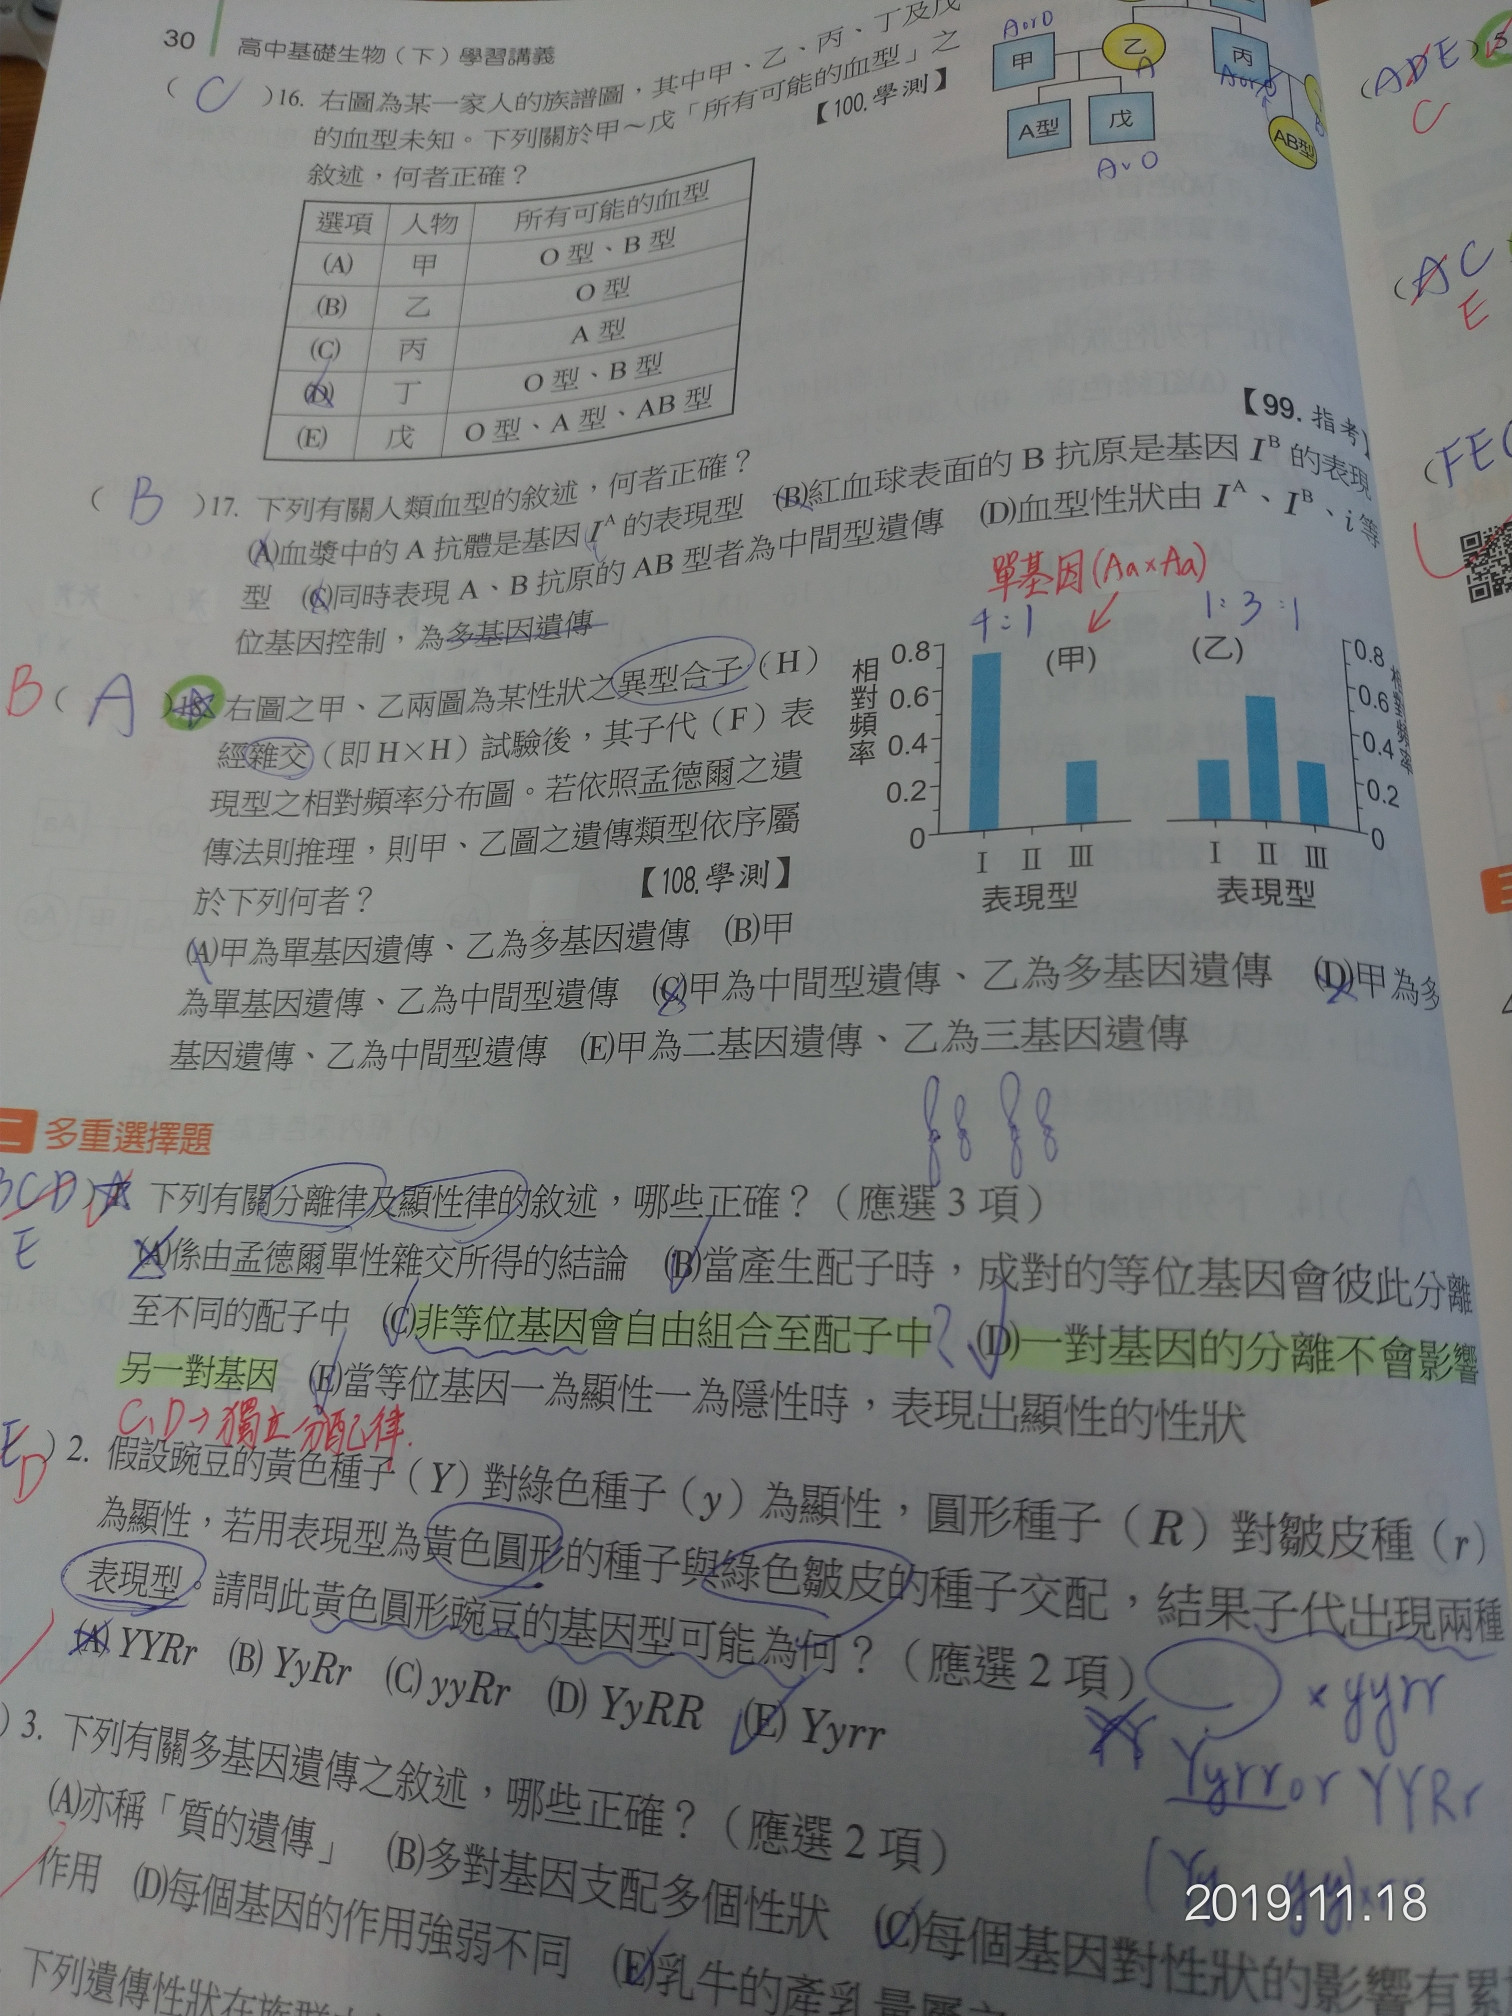 30 高中基礎生物（下）學習講義
( C )16. 右圖為某一家人的族譜圖，其中甲、乙、丙、丁及戊
的血型未知。下列關於甲～戊「所有可能的血型」之
敘述，何者正確？ 【100.學測】
AorO
甲 乙 丙
A AorB
A型 戊 AB型
AvO
選項 人物 所有可能的血型
(A) 甲 O 型、B 型
(B) 乙 O 型
(C) 丙 A 型
(D) 丁 O 型、B 型
(E) 戊 O 型、A 型、AB 型
( B )17. 下列有關人類血型的敘述，何者正確？ 【99.指考】
(A)血漿中的 A 抗體是基因 Iᴬ 的表現型 (B)紅血球表面的 B 抗原是基因 Iᴮ 的表現
型 (C)同時表現 A、B 抗原的 AB 型者為中間型遺傳 (D)血型性狀由 Iᴬ、Iᴮ、i 等
位基因控制，為多基因遺傳
單基因(Aa×Aa)
4:1 1:3:1
B ( A ) 右圖之甲、乙兩圖為某性狀之異型合子（H）
經雜交（即 H×H）試驗後，其子代（F）表
現型之相對頻率分布圖。若依照孟德爾之遺
傳法則推理，則甲、乙圖之遺傳類型依序屬
於下列何者？ 【108.學測】
(甲) (乙)
相對頻率 0.8 0.6 0.4 0.2 0
0.8 0.6 0.4 0.2 0 相對頻率
I II III I II III
表現型 表現型
(A)甲為單基因遺傳、乙為多基因遺傳 (B)甲
為單基因遺傳、乙為中間型遺傳 (C)甲為中間型遺傳、乙為多基因遺傳 (D)甲為多
基因遺傳、乙為中間型遺傳 (E)甲為二基因遺傳、乙為三基因遺傳
二 多重選擇題
BCD) 下列有關分離律及顯性律的敘述，哪些正確？（應選 3 項）
E
(A)係由孟德爾單性雜交所得的結論 (B)當產生配子時，成對的等位基因會彼此分離
至不同的配子中 (C)非等位基因會自由組合至配子中? (D)一對基因的分離不會影響
另一對基因 (E)當等位基因一為顯性一為隱性時，表現出顯性的性狀
C、D→獨立分配律.
E
D
) 2. 假設豌豆的黃色種子（Y）對綠色種子（y）為顯性，圓形種子（R）對皺皮種（r）
為顯性，若用表現型為黃色圓形的種子與綠色皺皮的種子交配，結果子代出現兩種
表現型。請問此黃色圓形豌豆的基因型可能為何？（應選 2 項）
(A) YYRr (B) YyRr (C) yyRr (D) YyRR (E) Yyrr
× yyrr
Yyrr or YYRr
) 3. 下列有關多基因遺傳之敘述，哪些正確？（應選 2 項）
(A)亦稱「質的遺傳」 (B)多對基因支配多個性狀 (C)每個基因對性狀的影響有累
作用 (D)每個基因的作用強弱不同 (E)乳牛的產乳量屬
下列遺傳性狀在族群
(ADE)
C
(AC
E
(FEC
2019.11.18